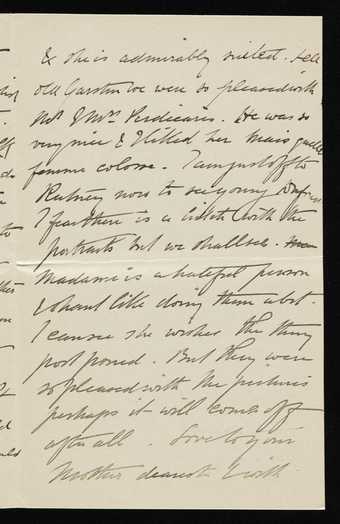 & she is admirably suited. Tell
old Garstin we were so pleased with
Mr & Mrs Perdicaris. He was so
very nice & I liked her mais quelle
femme colosse. I am just off to
Putney now to see young
I fear there is a hitch with the
portraits but we shall see.
Madame is a hateful person
& I shant like doing them a bit.
I can see she wishes the thing
postponed. But they were
so pleased with the pictures
perhaps it will come off
after all. Love to your
Mother dearest with